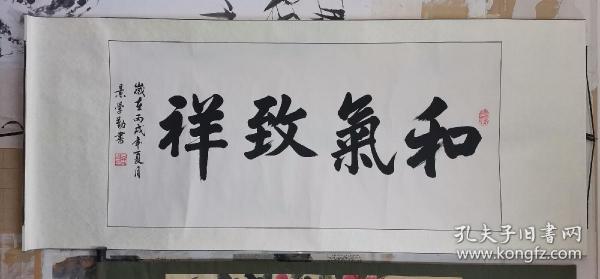 和氣致祥
歲在丙戌年夏月
景学勤書
孔夫子旧書网
www.kongfz.com